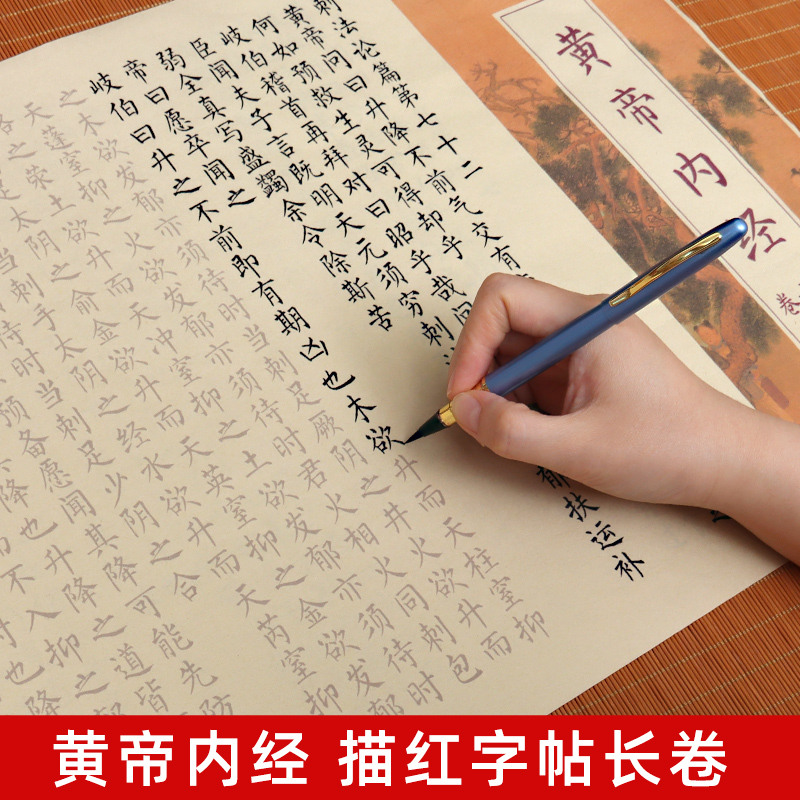 黄帝内经
卷
刺法论篇第七十二
黄帝问曰升降不前气交有
何如预救生灵可得却乎
岐伯稽首再拜对曰昭乎哉问
臣闻夫子言既明天元须穷刺
郁扶运补
弱全真写盛蠲余令除斯苦
帝曰愿卒闻之
岐伯曰升之不前即有期凶也木欲升而天柱窒抑
之木欲发郁亦须待时当刺足厥阴之井火欲升而
天蓬窒抑之火欲发郁亦须待时君火相火同刺包
络之荥土欲升而天冲窒抑之土欲发郁亦须待时
当刺足太阴之俞金欲升而天英窒抑之金欲发郁
待时当刺手太阴之经水欲升而天芮窒抑
待时当刺足少阴之合
预备愿闻其降可
先防
降也升降之道皆
黄帝内经 描红字帖长卷